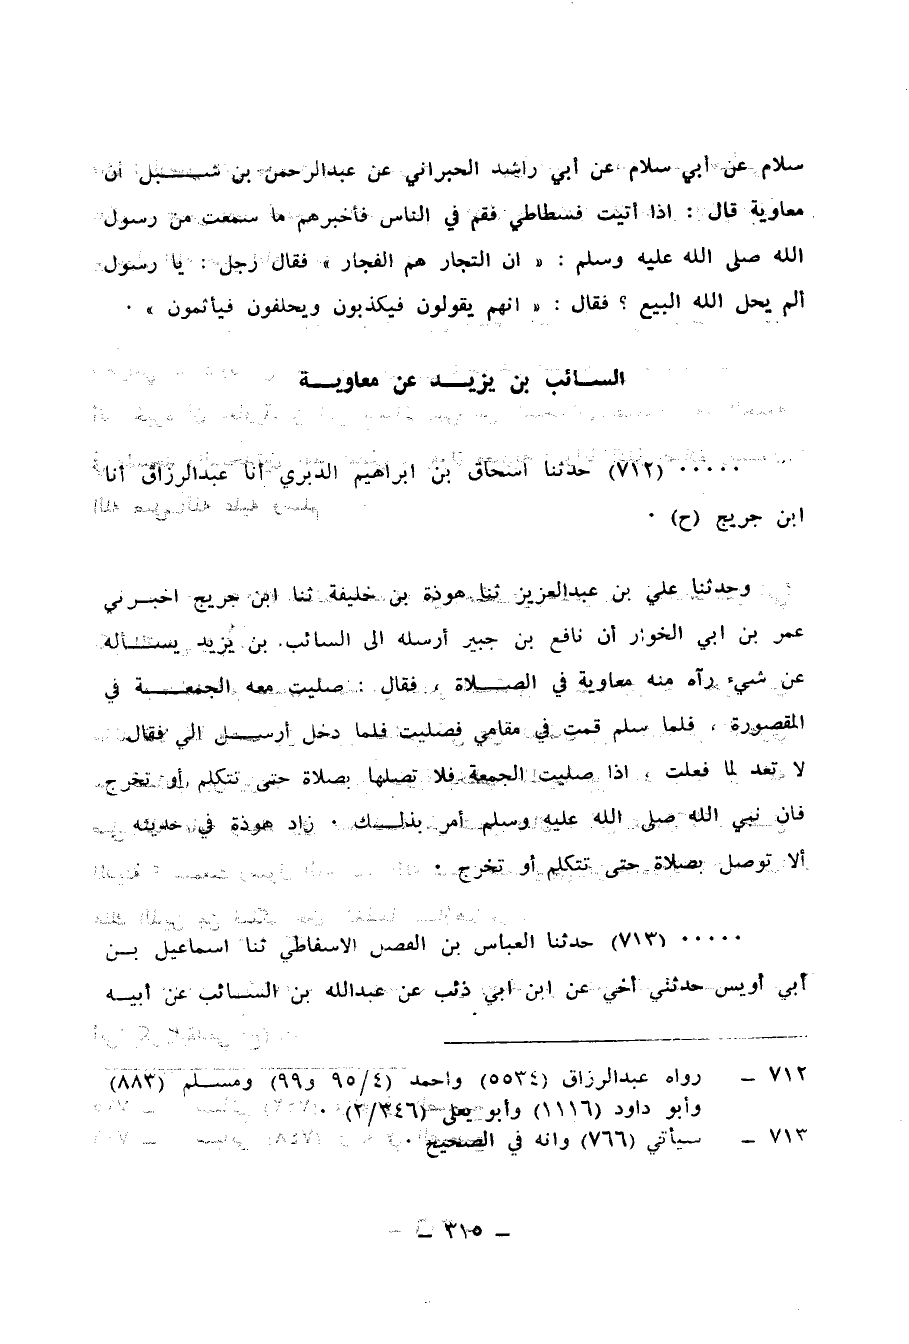 سلام عن أبي سلام عن أبي راشد الحبراني عن عبدالرحمن بن شبـــبل أن
معاوية قال : اذا أتيت فسطاطي فقم في الناس فأخبرهم ما سمعت من رسول
الله صلى الله عليه وسلم : « ان التجار هم الفجار » فقال رجل : يا رسول
ألم يحل الله البيع ؟ فقال : « انهم يقولون فيكذبون ويحلفون فيأثمون » ٠
الســائب بن يزيــد عن معاويــة
٠٠٠٠٠ (٧١٢) حدثنا اسحاق بن ابراهيم الدبري أنا عبدالرزاق أنا
ابن جريج (ح) ٠
وحدثنا علي بن عبدالعزيز ثنا هوذة بن خليفة ثنا ابن جريج اخبــرني
عمر بن ابي الخوار أن نافع بن جبير أرسله الى السائب بن يزيد يســأله
عن شيء رآه منه معاوية في الصــلاة ، فقال : صليت معه الجمعــة في
المقصورة ، فلما سلم قمت في مقامي فصليت فلما دخل أرســل الي فقال
لا تعد لما فعلت ، اذا صليت الجمعة فلا تصلها بصلاة حتى تتكلم أو تخرج
فان نبي الله صلى الله عليه وسلم أمر بذلــك ٠ زاد هوذة في حديثه
ألا توصل بصلاة حتى تتكلم أو تخرج ٠
٠٠٠٠٠ (٧١٣) حدثنا العباس بن الفضل الاسفاطي ثنا اسماعيل بــن
أبي أويس حدثني أخي عن ابن ابي ذئب عن عبدالله بن الســائب عن أبيــه
٧١٢ ــ رواه عبدالرزاق (٥٥٣٤) واحمد (٩٥/٤ و٩٩) ومســلم (٨٨٣)
وأبو داود (١١١٦) وأبو يعلى (٢/٣٤٦) ٠
٧١٣ ــ سيأتي (٧٦٦) وانه في الصحيح ٠
ــ ٣١٥ ــ